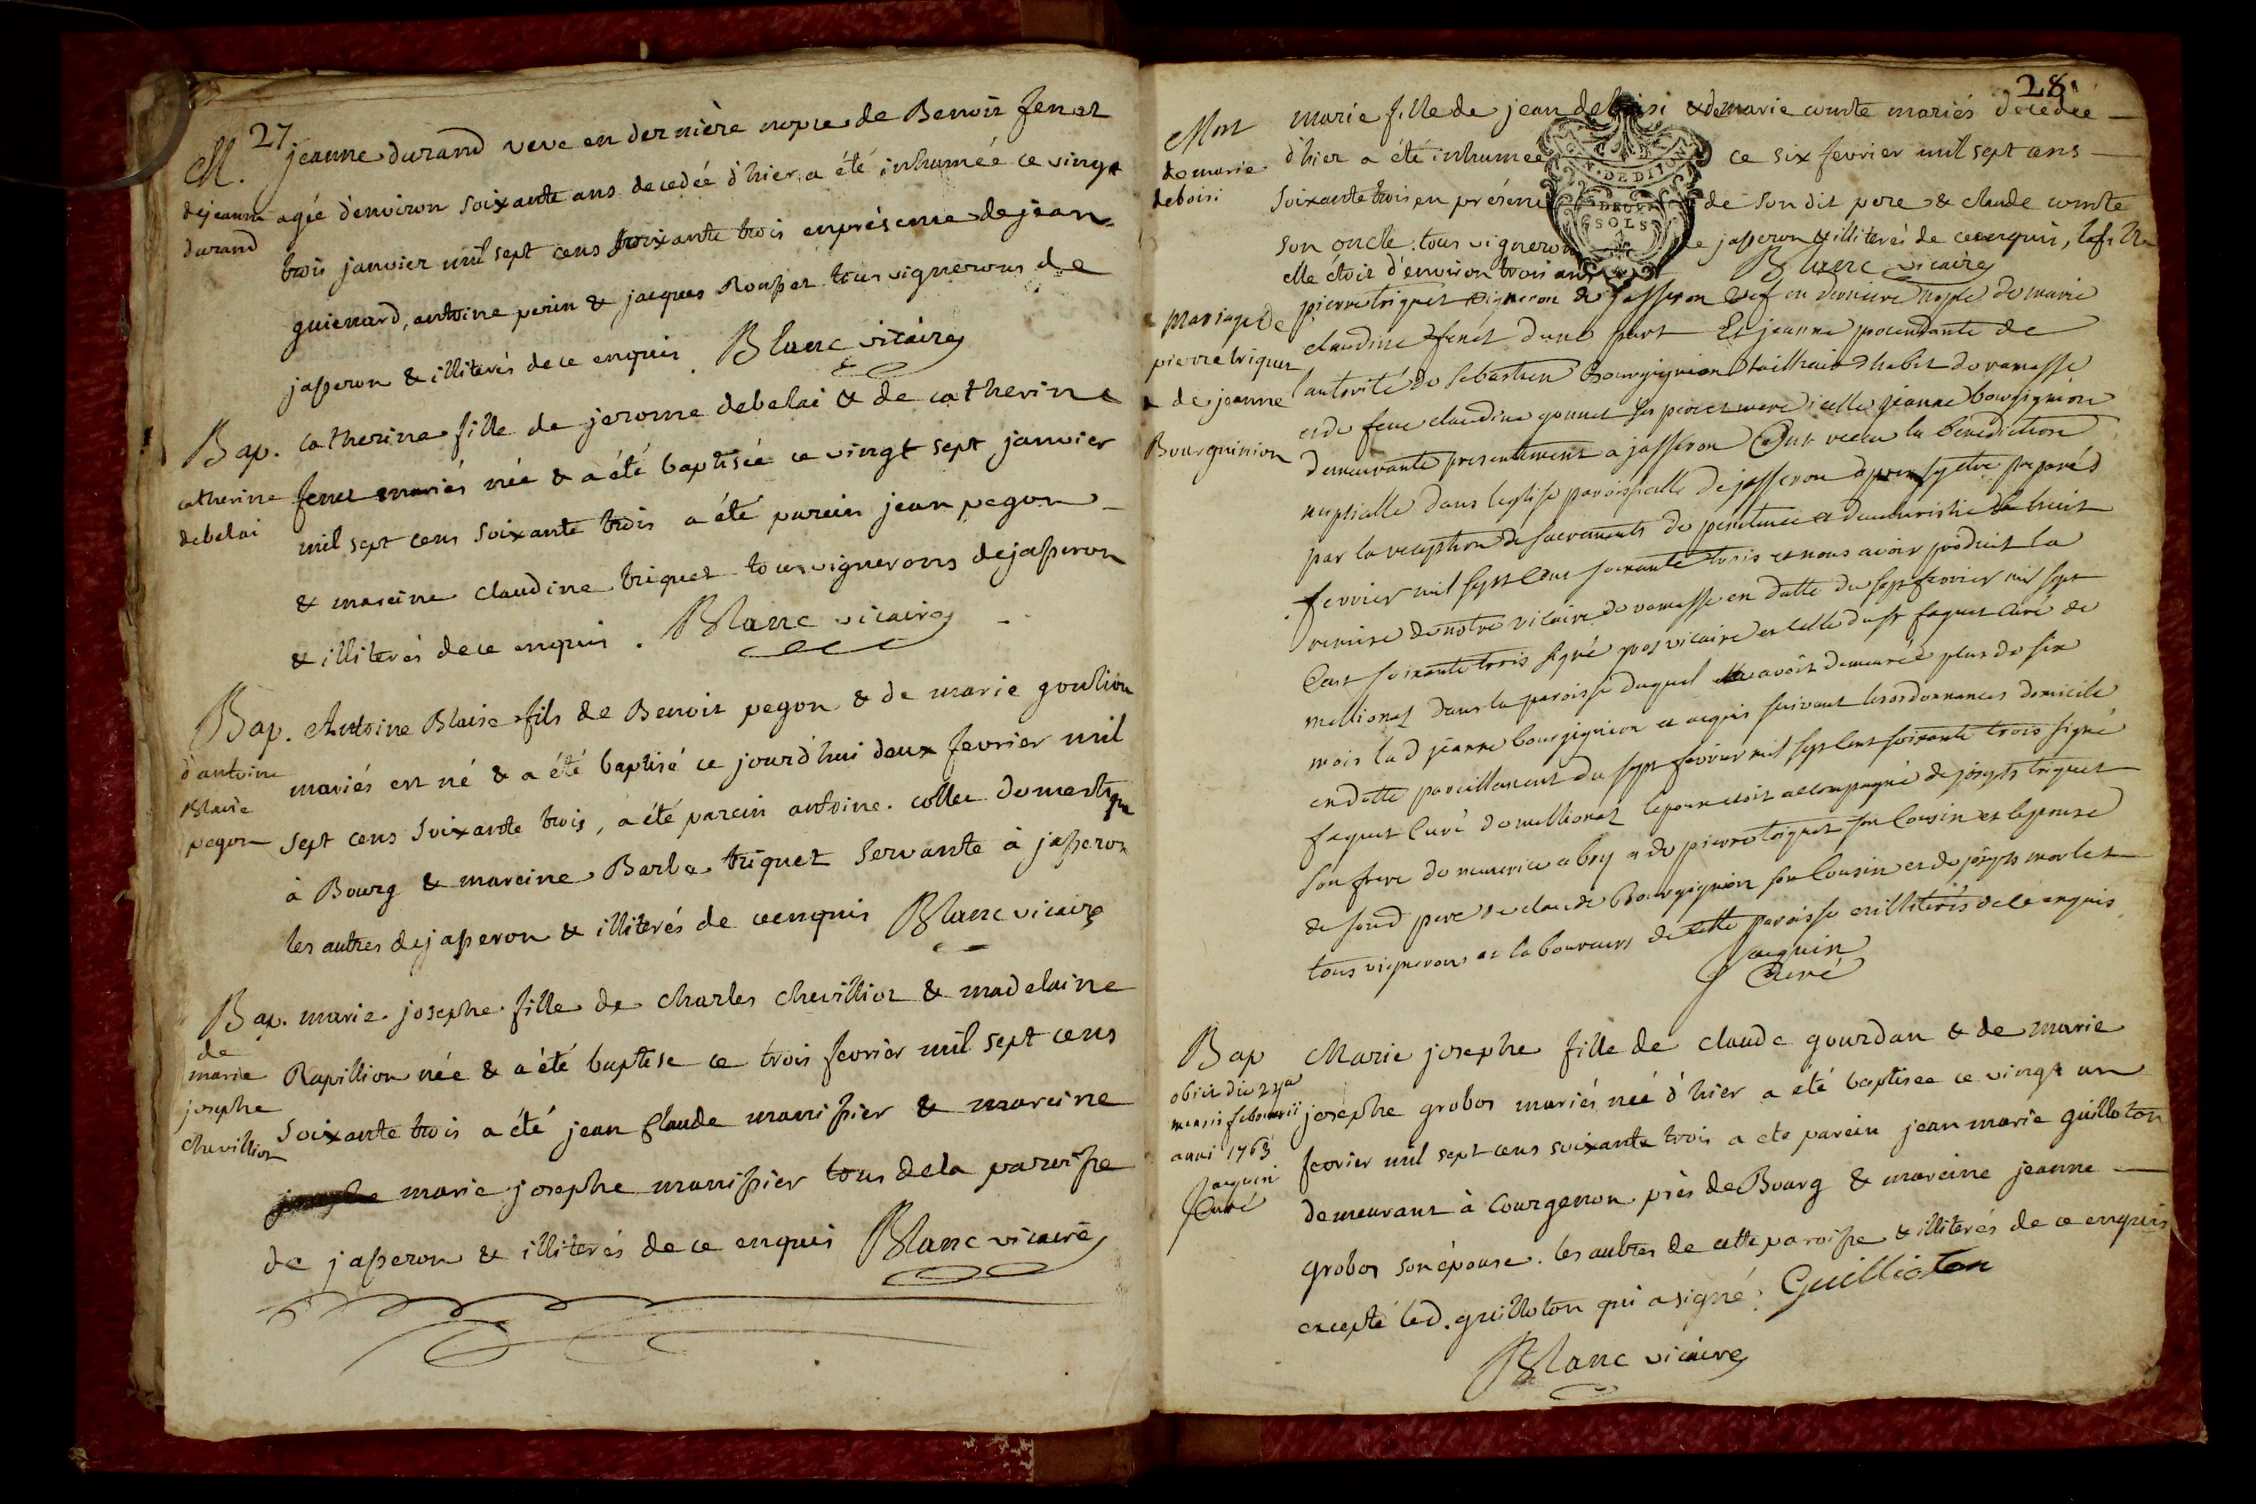 27
M.
de jeanne
durand
jeanne durand veve en dernière nopce de Benoit fenet
agée d'environ soixante ans decedée d'hier, a été inhumée ce vingt
trois janvier mil sept cens soixante trois en présence de jean
guienard, antoine perin & jacques Rousset tous vignerons de
jasseron & illiterés de ce enquis. Blanc vicaire
Bap.
catherine
debelai
catherine fille de jerome debelai & de catherine
fenet mariés née & a été baptisée ce vingt sept janvier
mil sept cens soixante trois a été parein jean pegon
& mareine claudine triquet tous vignerons de jasseron
& illiterés de ce enquis. Blanc vicaire
Bap.
d'antoine
Blaise
pegon
Antoine Blaise fils de Benoit pegon & de marie goulion
mariés est né & a été baptisé ce jourd'hui deux fevrier mil
sept cens soixante trois, a été parein antoine collet domestique
à Bourg & mareine Barbe triquet servante à jasseron
les autres de jasseron & illiterés de ce enquis Blanc vicaire
Bap.
de
marie
josephe
chevilliot
marie josephe fille de charles chevilliot & madelaine
Rapillion née & a été baptise ce trois fevrier mil sept cens
soixante trois a été jean claude manissier & mareine
marie josephe manissier tous de la paroisse
de jasseron & illiterés de ce enquis Blanc vicaire
28
Mort
de marie
deboisi
marie fille de jean deboisi & de marie comte mariés décedée
d'hier a été inhumée ce six fevrier mil sept cens
soixante trois en présence de son dit pere & claude comte
son oncle tous vignerons de jasseron & illiterés de ce enquis,
elle étoit d'environ trois ans Blanc vicaire
DE DIJON
DEUX
SOLS
mariage de
pierre triquet
& de jeanne
Bourguinion
pierre triquet vigneron de jasseron vef en derniere nopce de marie
claudine fenet d'une part Et jeanne procedante de
l'autorité de sebastien Bourguignion tailleur d'habit de ramasse
et de feue claudine gonnet ses pere et mere icelle jeanne bourguignion
demeurante presentement a jasseron ont recu la benediction
nuptialle dans l'eglise paroissialle de jasseron apres s'y etre preparés
par la reception de sacrements de penitence et d'eucharistie le huit
fevrier mil sept cent soixante trois et nous avoir produit la
remise de notre vicaire de ramasse en datte du sept fevrier mil sept
cent soixante trois signé gros vicaire et celle du sr faguet curé de
meillionas dans la paroisse duquel avoit demeurée plus de six
mois lad jeanne bourguignion et acquis suivant les ordonnances domicile
en datte pareillement du sept fevrier mil sept cent soixante trois signé
faguet curé de meillionas l'epoux etoit accompagné de joseph triquet
son frere et de pierre triquet son cousin et l'epouse
de sond pere de claude Bourguignion son cousin et de joseph morlet
tous vignerons et laboureurs de cette paroisse et illiterés de ce enquis
Jacquin
Curé
Bap
obiit die 22a
mensis februarii
anni 1763
Jacquin
Curé
Marie josephe fille de claude gourdan & de marie
josephe grobos mariés née d'hier a été baptisée ce vingt un
fevrier mil sept cens soixante trois a ete parein jean marie guilloton
demeurant à Courgenon près de Bourg & mareine jeanne
grobos son épouse. les autres de cette paroisse & illiterés de ce enquis
excepté led. guilloton qui a signé. Guillioton
Blanc vicaire